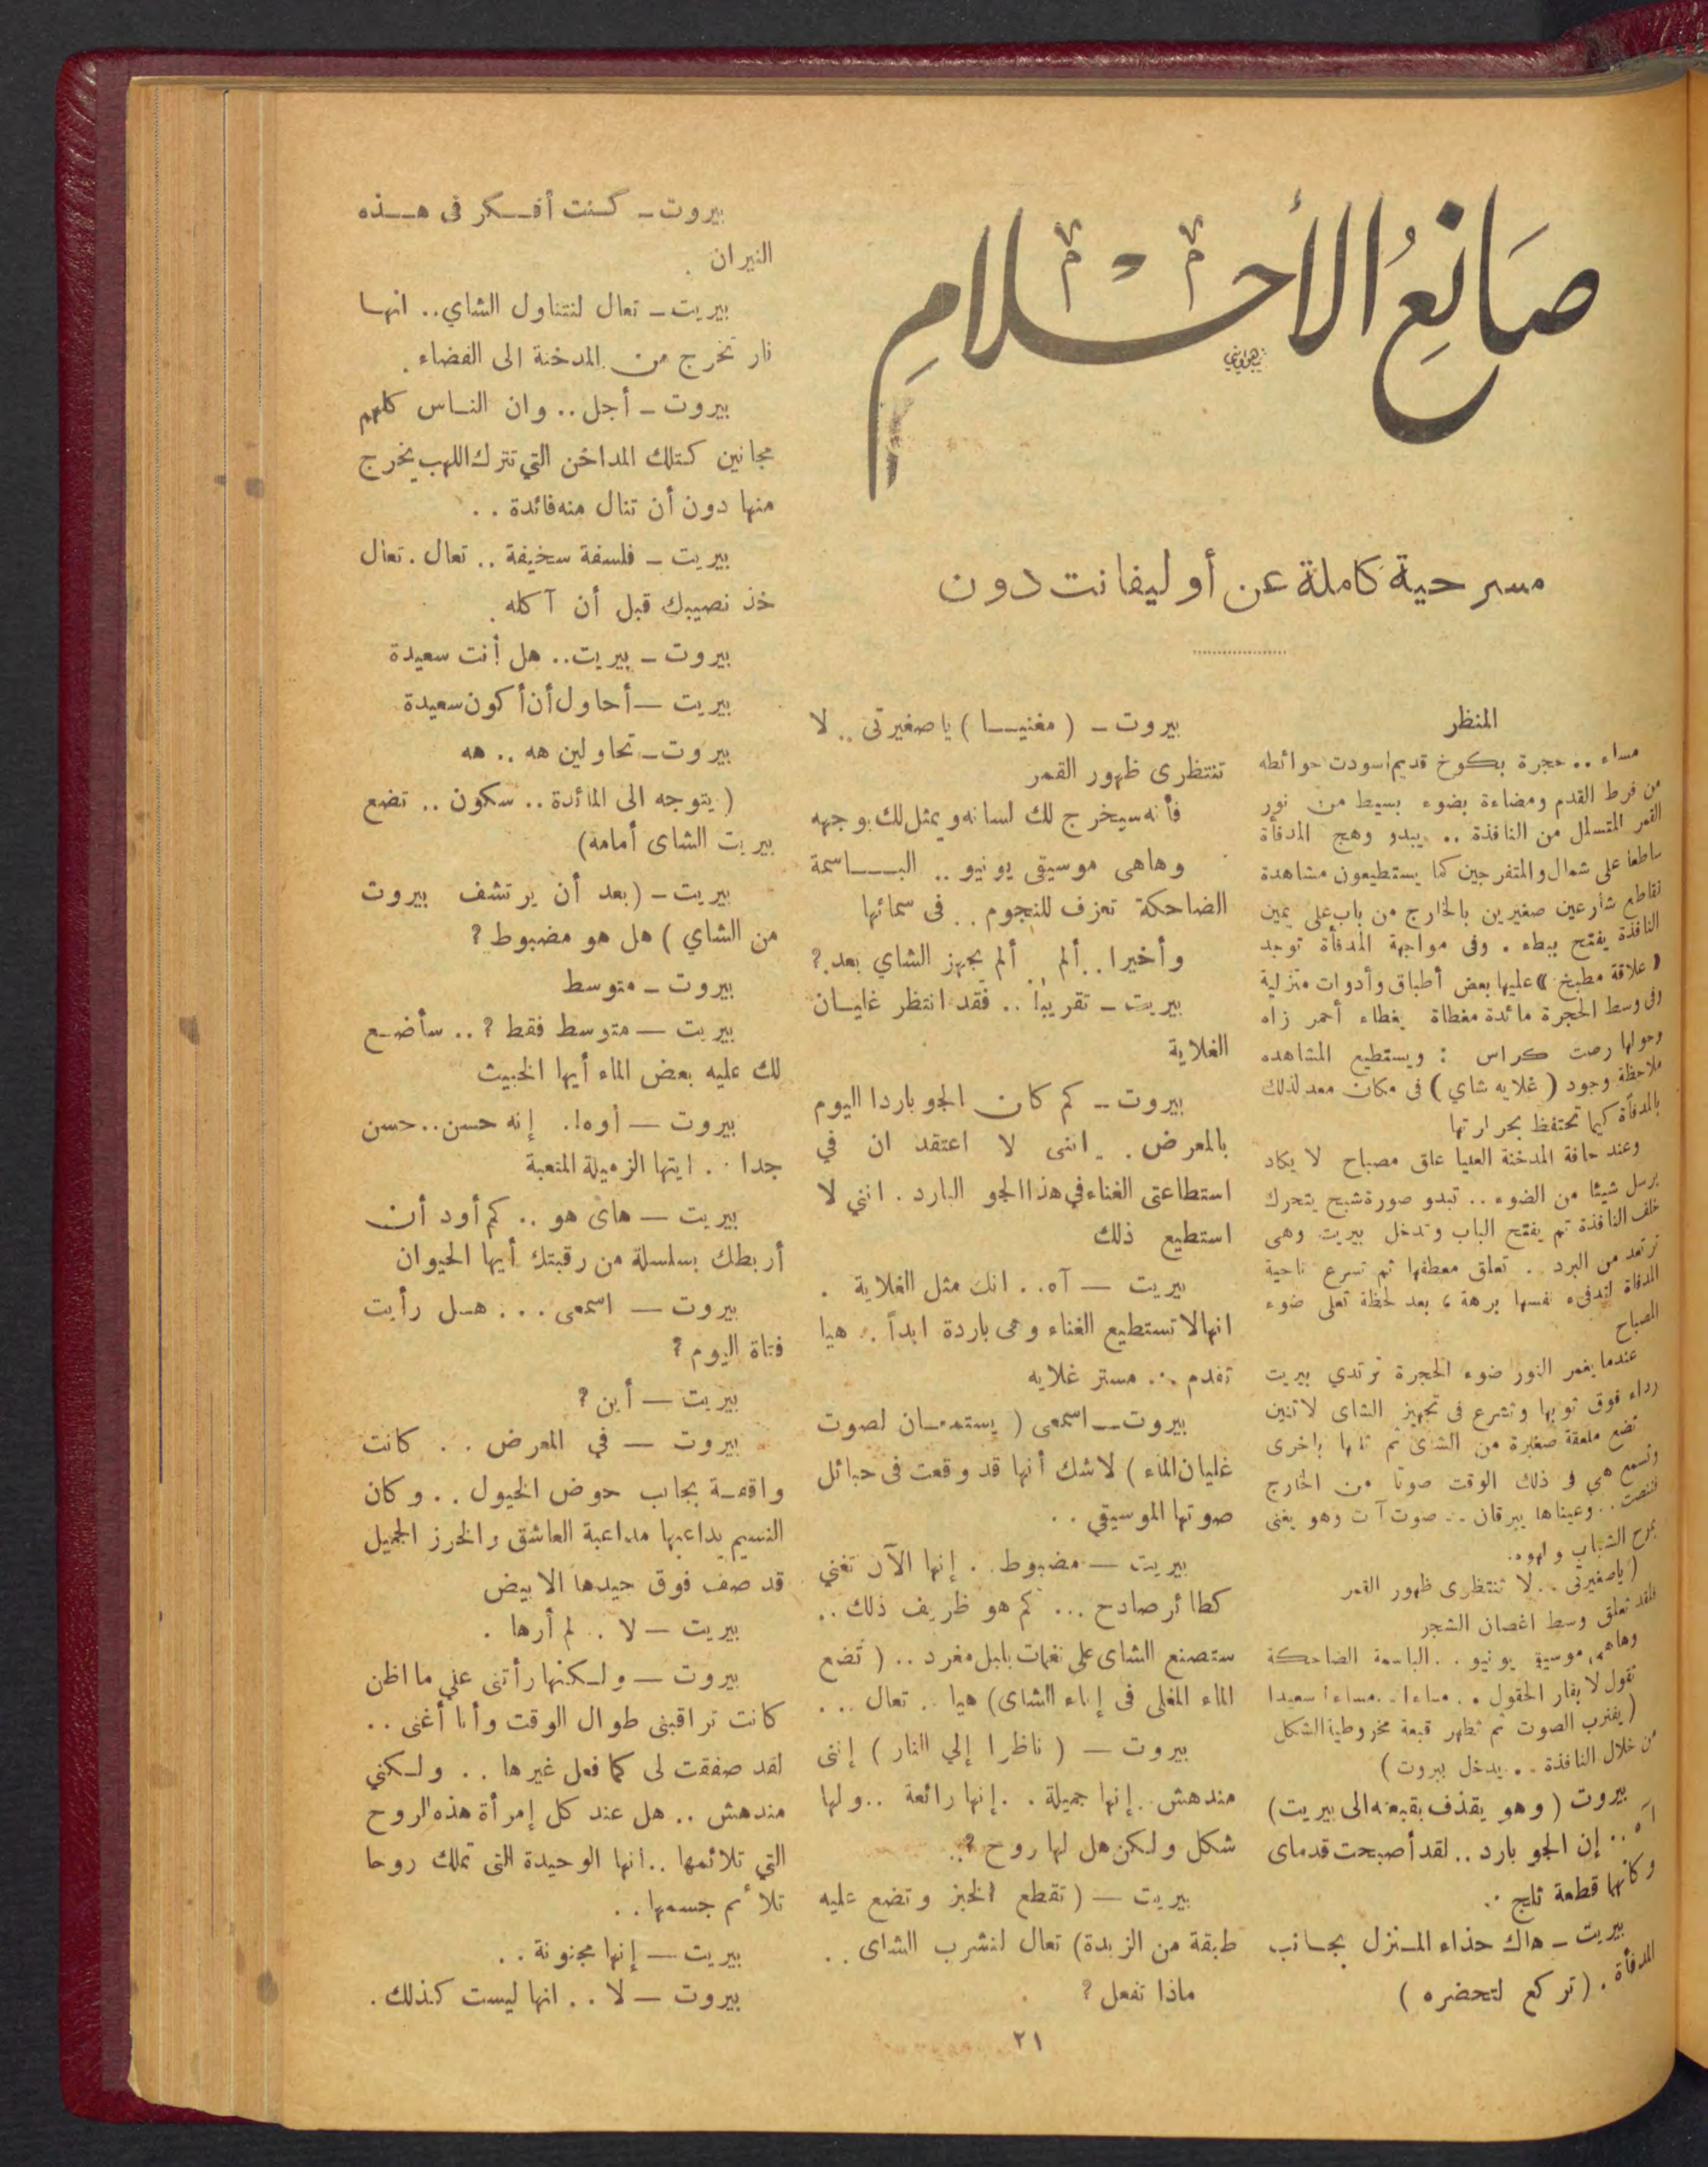 صَانِعُ الأَحْلامِ
مسرحية كاملة عن أوليفانت دون
المنظر
مساء .. حجرة بكوخ قديم اسودت حوائطه
من فرط القدم ومضاءة بضوء بسيط من نور
القمر المتسلل من النافذة .. يبدو وهج المدفأة
ساطعا على شمال والمتفرجين كما يستطيعون مشاهدة
تقاطع شارعين صغيرين بالخارج من باب على يمين
النافذة يفتح ببطء . وفى مواجهة المدفأة توجد
« علاقة مطبخ » عليها بعض أطباق وأدوات منزلية
وفى وسط الحجرة مائدة مغطاة بغطاء أحمر زاه
وحولها رصت كراس : ويستطيع المشاهده
ملاحظة وجود ( غلايه شاي ) فى مكان معد لذلك
بالمدفأة كيما تحتفظ بحرارتها
وعند حافة المدخنة العليا علق مصباح لا يكاد
يرسل شيئا من الضوء .. تبدو صورة شبح يتحرك
خلف النافذة ثم يفتح الباب وتدخل بيريت وهى
ترتعد من البرد .. تعلق معطفها ثم تسرع ناحية
المدفاة لتدفىء نفسها برهة ، بعد لحظة تعلى ضوء
المصباح
عندما يغمر النور ضوء الحجرة ترتدي بيريت
رداء فوق ثوبها وتشرع فى تجهيز الشاى لاثنين
تضع ملعقة صغيرة من الشاى ثم تليها باخرى
وتسمع هي فى ذلك الوقت صوتا من الخارج
فتنصت .. وعيناها يبرقان .. صوت آت وهو يغنى
بمرح الشباب ولهوه.
( ياصغيرتى .. لا تنتظرى ظهور القمر
فلقد تعلق وسط اغصان الشجر
وهاهى موسيقى يونيو .. الباسمة الضاحكة
تقول لا بقار الحقول .. مساءا .. مساءا سعيدا
( يقترب الصوت ثم تظهر قبعة مخروطية الشكل
من خلال النافذة .. يدخل بيروت )
بيروت ( وهو يقذف بقبعته الى بيريت )
آه .. إن الجو بارد .. لقد أصبحت قدماى
وكانهما قطعة ثلج ..
بيريت ـ هاك حذاء المنزل بجانب
المدفأة . ( تركع لتحضره )
بيروت ـ ( مغنيا ) ياصغيرتى .. لا
تنتظرى ظهور القمر
فأنه سيخرج لك لسانه ويمثل لك بوجهه
وهاهى موسيقى يونيو .. الباسمة
الضاحكة تعزف للنجوم .. فى سمائها
وأخيرا .. ألم .. ألم يجهز الشاي بعد ؟
بيريت ـ تقريبا .. فقد انتظر غليان
الغلاية
بيروت ـ كم كان الجو باردا اليوم
بالمعرض .. اننى لا اعتقد ان في
استطاعتى الغناء في هذا الجو البارد . انني لا
استطيع ذلك
بيريت — آه .. انك مثل الغلاية .
انها لا تستطيع الغناء وهى باردة ابداً .. هيا
تقدم .. مستر غلايه
بيروت ـ اسمعى ( يستمعان لصوت
غليان الماء ) لاشك أنها قد وقعت فى حبائل
صوتها الموسيقي ..
بيريت — مضبوط .. إنها الآن تغني
كطائر صادح ... كم هو ظريف ذلك ..
ستصنع الشاى على نغمات بلبل مغرد .. ( تضع
الماء المغلى فى إناء الشاى ) هيا .. تعال ...
بيروت — ( ناظرا إلي النار ) إننى
مندهش .. إنها جميلة .. إنها رائعة .. ولها
شكل ولكن هل لها روح ؟ ..
بيريت — ( تقطع الخبز وتضع عليه
طبقة من الزبدة ) تعال لنشرب الشاى ..
ماذا تفعل ؟
بيروت ـ كنت أفكر فى هذه
النيران .
بيريت ـ تعال لنتناول الشاي .. انها
نار تخرج من المدخنة الى الفضاء .
بيروت ـ أجل .. وان الناس كلهم
مجانين كتلك المداخن التي تترك اللهب يخرج
منها دون أن تنال منه فائدة ..
بيريت ـ فلسفة سخيفة .. تعال . تعال
خذ نصيبك قبل أن آكله .
بيروت ـ بيريت .. هل أنت سعيدة
بيريت — أحاول أن أكون سعيدة
بيروت ـ تحاولين هه .. هه
( يتوجه الى المائدة .. سكون .. تضع
بيريت الشاى أمامه )
بيريت ـ ( بعد أن يرتشف بيروت
من الشاي ) هل هو مضبوط ؟
بيروت ـ متوسط
بيريت — متوسط فقط ؟ .. سأضع
لك عليه بعض الماء أيها الخبيث
بيروت — أوه ! . إنه حسن .. حسن
جدا .. ايتها الزميلة المتعبة
بيريت — هاى هو .. كم أود أن
أربطك بسلسلة من رقبتك أيها الحيوان
بيروت — اسمعى ... هل رأيت
فتاة اليوم ؟
بيريت — أين ؟
بيروت — في المعرض .. كانت
واقفة بجانب حوض الخيول .. وكان
النسيم يداعبها مداعبة العاشق والخرز الجميل
قد صف فوق جيدها الابيض
بيريت — لا .. لم أرها .
بيروت — ولكنها رأتنى علي ما اظن
كانت تراقبنى طوال الوقت وأنا أغنى ..
لقد صفقت لى كما فعل غيرها .. ولكنني
مندهش .. هل عند كل إمرأة هذه الروح
التي تلائمها .. انها الوحيدة التى تملك روحا
تلائم جسمها ..
بيريت — إنها مجنونة ..
بيروت — لا .. انها ليست كذلك .
٢١